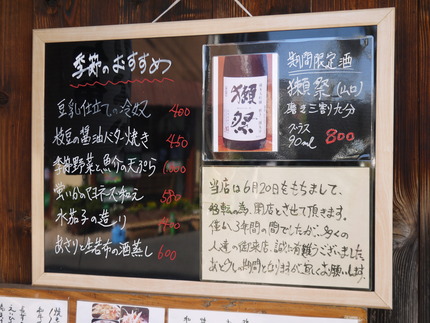 季節のおすすめ
豆乳仕立ての冷奴 400
枝豆の醤油バター焼き 450
季節野菜と魚介の天ぷら
蛍いかのマヨネーズ和え 580
水茄子の造り
あさりと生若布の酒蒸し 600
期間限定酒
獺祭(山口)
磨き三割九分
グラス
90ml 800
獺祭
当店は6月20日をもちまして、
移転の為、閉店とさせて頂きます。
僅か3年間の間でしたが、多くの
人達の御来店、誠に有難うございました。
あと少しの期間となりますが宜しくお願いします。